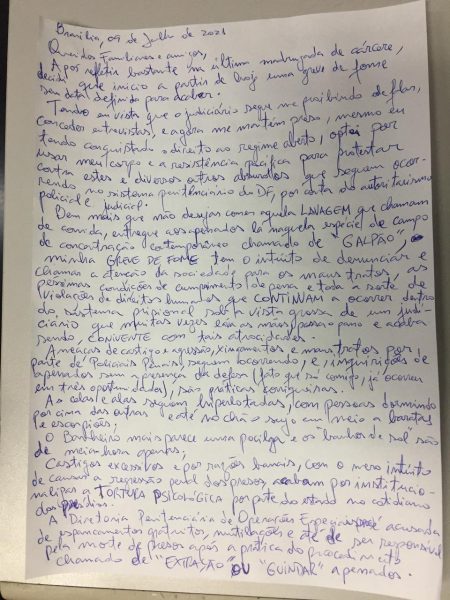 Brasília, 09 de Julho de 2021
Queridos Familiares e amigos,
Após refletir bastante na última madrugada de cárcere,
decidi que inicio a partir de hoje uma greve de fome
sem data definida para acabar.
Tendo em vista que o judiciário segue me proibindo de falar,
conceder entrevistas, e agora me mantém preso, mesmo eu
tendo conquistado o direito ao regime aberto, optei por
usar meu corpo e a resistência pacífica para protestar
contra estes e diversos outros absurdos que seguem ocor-
rendo no sistema penitenciário do DF, por conta do autoritarismo
policial e judicial.
Bem mais que não desejar comer aquela LAVAGEM que chamam
de comida, entregue aos apenados lá naquela espécie de campo
de concentração contemporâneo chamado de "GALPÃO",
minha GREVE DE FOME tem o intuito de denunciar e
chamar a atenção da sociedade para os maus tratos, as
péssimas condições de cumprimento de pena e toda a sorte de
violações de direitos humanos que CONTINUAM a ocorrer dentro
do sistema prisional sob a vista grossa de um judi-
ciário que muitas vezes lava as mãos, passa o pano e acaba
sendo, CONIVENTE com tais atrocidades.
Ameaças de castigo e agressão, xingamentos e maus tratos por
parte de Policiais Penais, seguem ocorrendo, e, inquirições de
apenados sem a presença da defesa (fato que se comigo, já ocorreu
em três oportunidades), são práticas corriqueiras.
As celas e alas seguem hiperlotadas, com pessoas dormindo
por cima das outras e até no chão sujo em meio a baratas
e escorpiões;
O Banheiro mais parece uma pocilga e os banhos de sol são
de meia hora apenas;
Castigos excessivos e por razões banais, com o mero intuito
de causar a regressão penal dos presos, acabam por institucio-
nalizar a TORTURA PSICOLÓGICA por parte do estado no cotidiano
dos presídios.
A Diretoria Penitenciária de Operações Especiais acusada
de espancamentos gratuitos, mutilações e até de ser responsável
pela morte de presos após a prática do procedimento
chamado de "EXTRAÇÃO OU "GUINDAR" apenados.